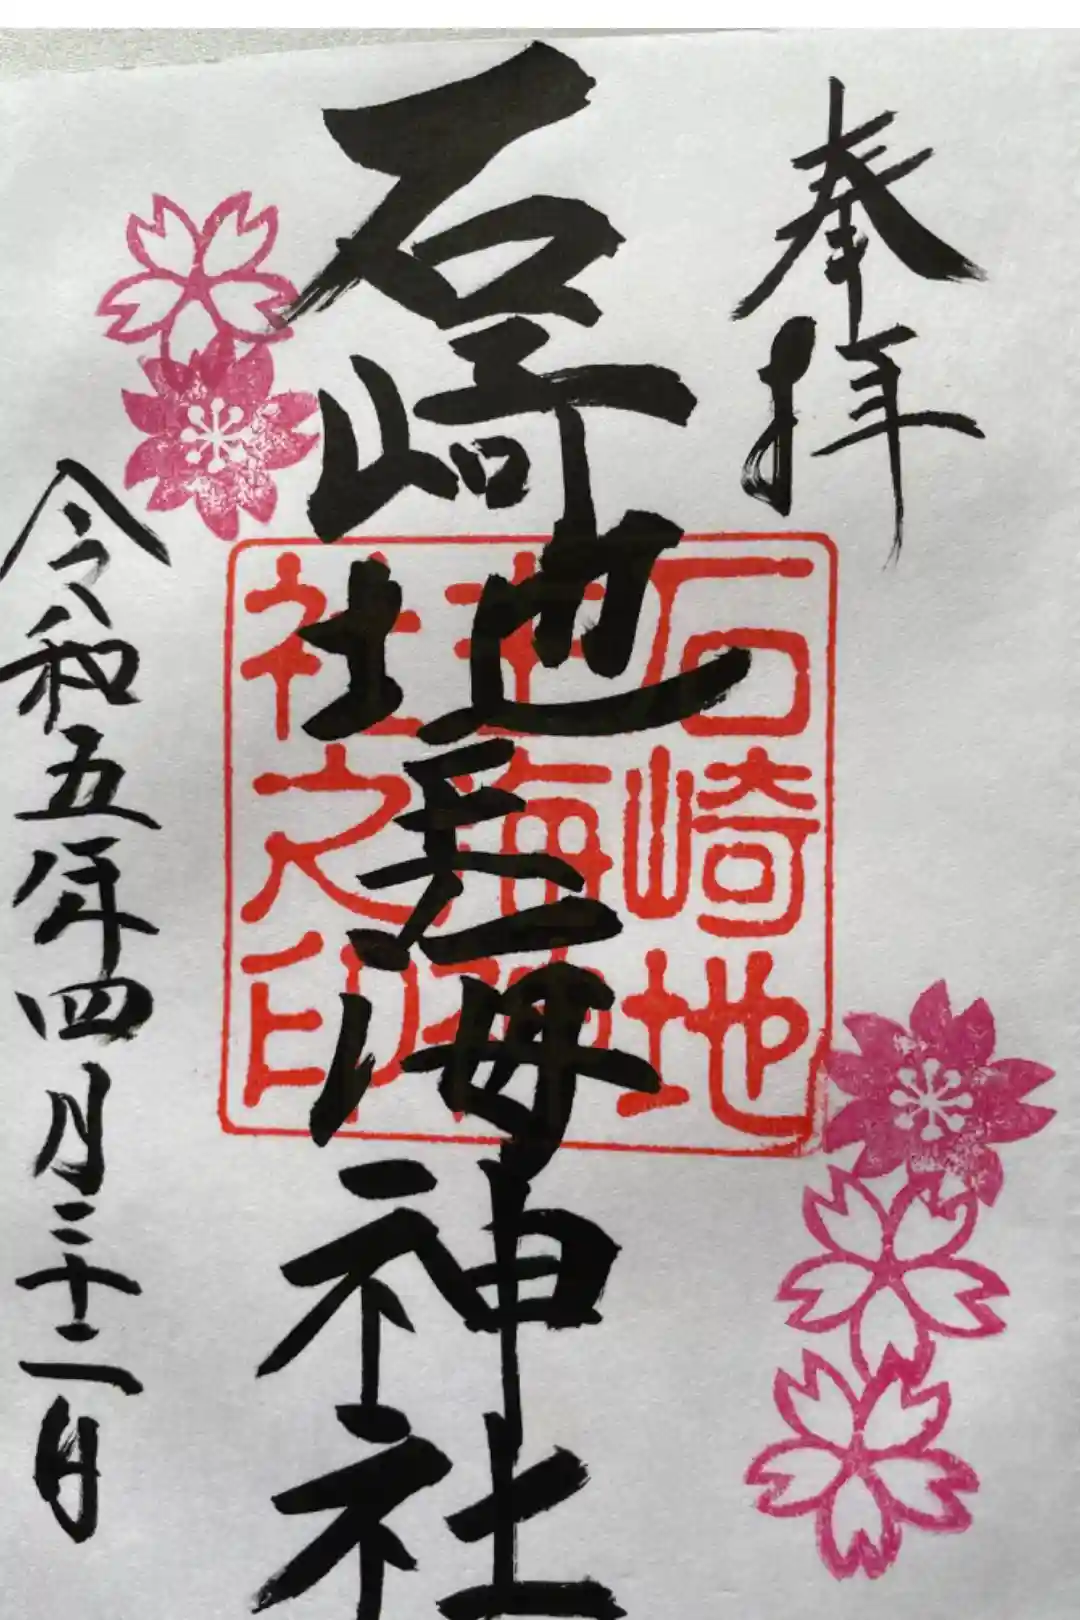 奉拝
石崎地主海神社
石崎地
主海神
社之印
令和五年四月二十二日